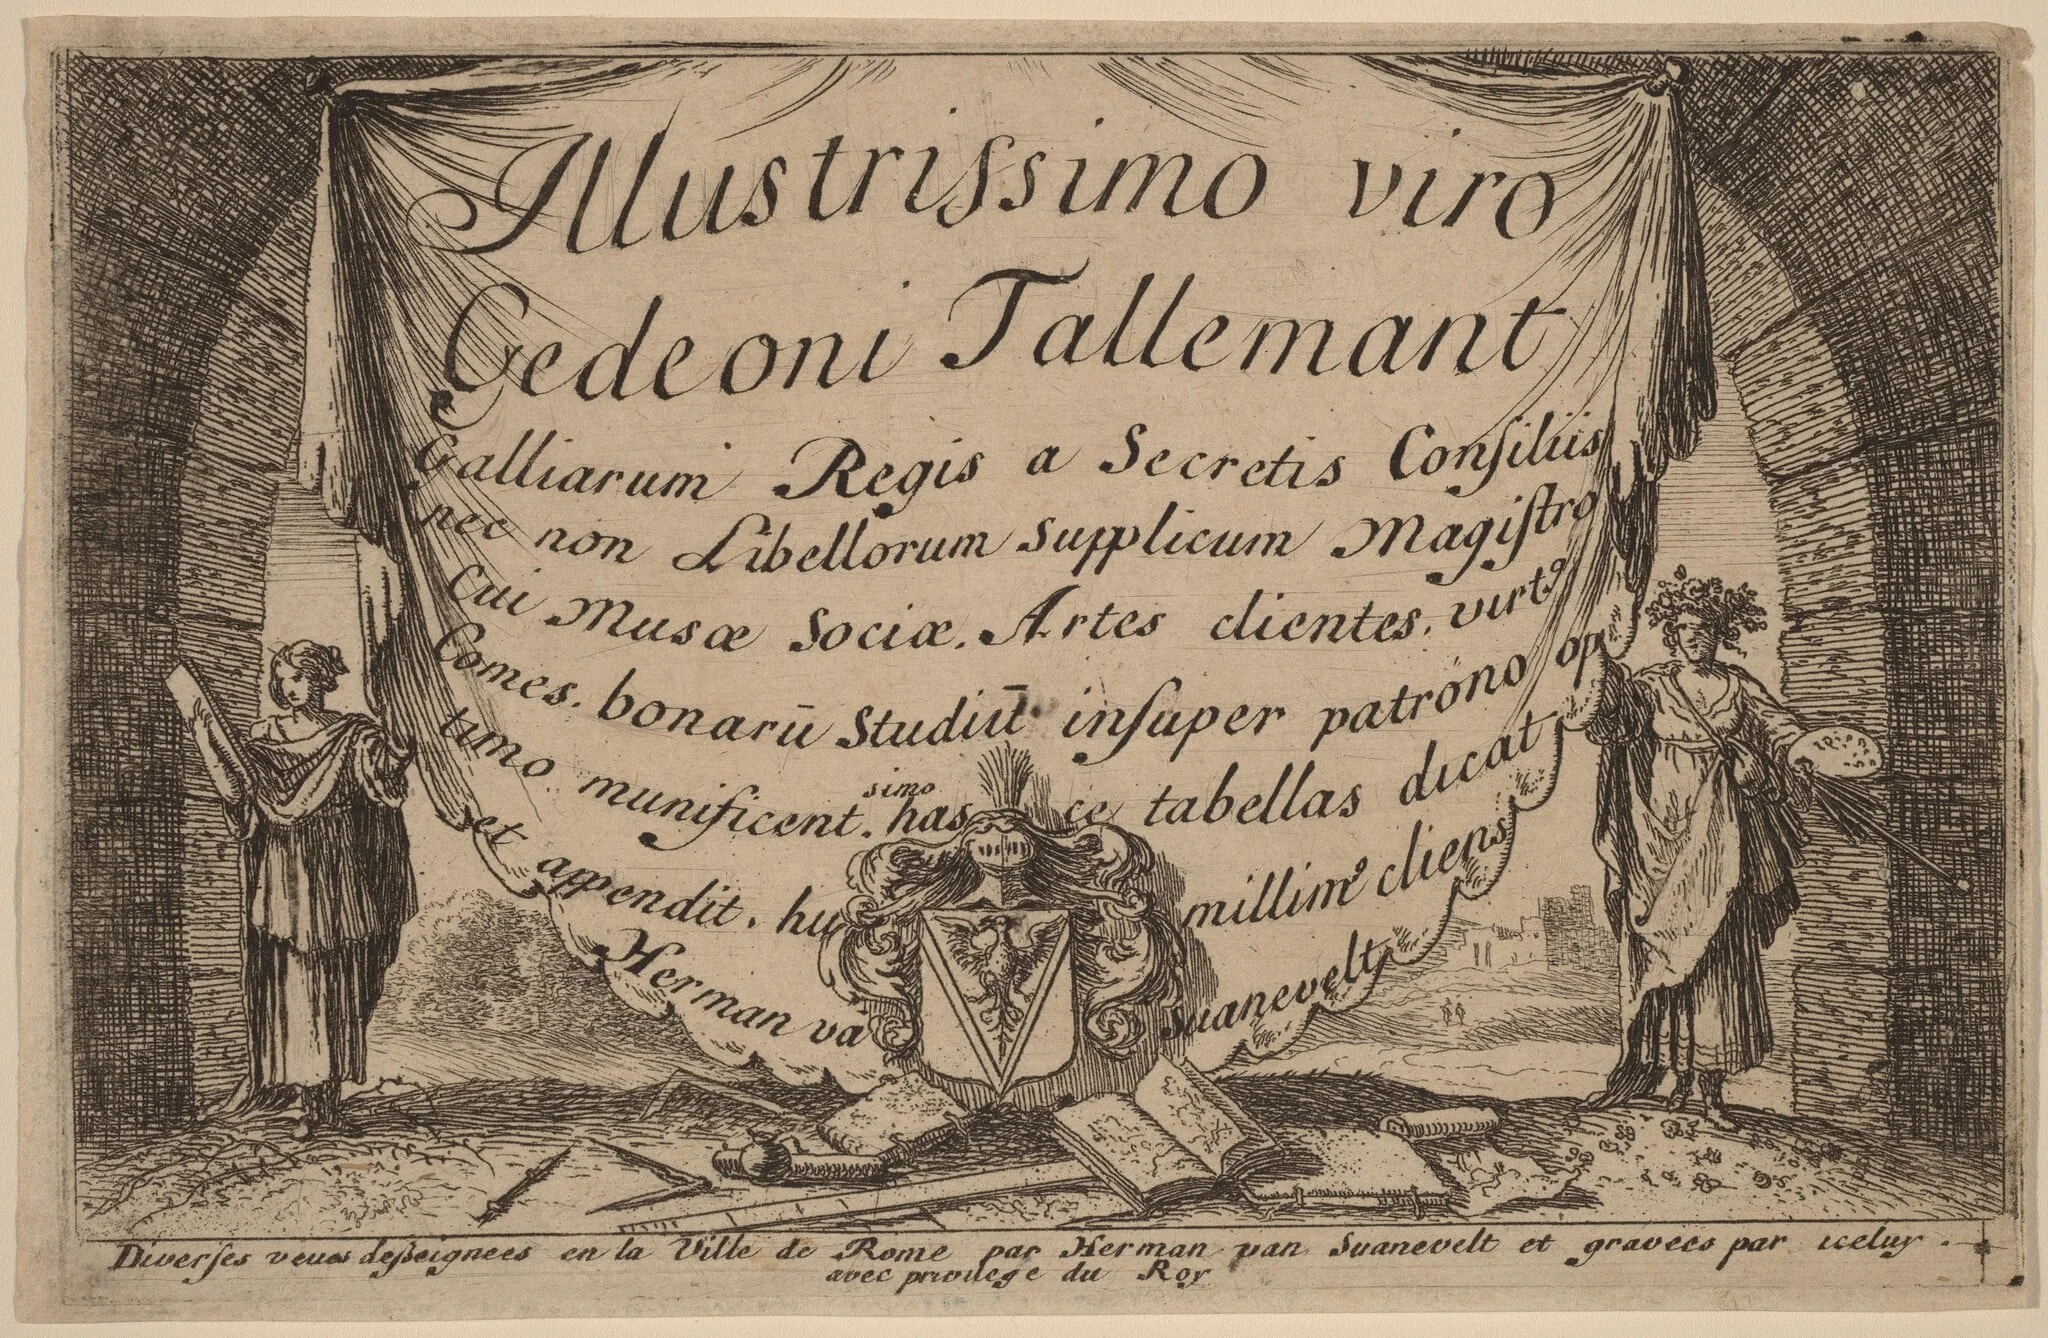 Illustriſsimo viro
Gedeoni Tallemant
Galliarum Regis a Secretis Conſiliis
nec non Libellorum supplicum Magiſtro
cui Musæ Sociæ. Artes clientes. virtꝰ
Comes. bonarū Studiū inſuper patrono op
timo munificent.simo has ce tabellas dicat
et appendit. hu millimꝰ cliens
Herman vā Suanevelt
Diverſes veues deſseignees en la Ville de Rome par Herman van Suanevelt et gravees par iceluy.
avec privilege du Roy